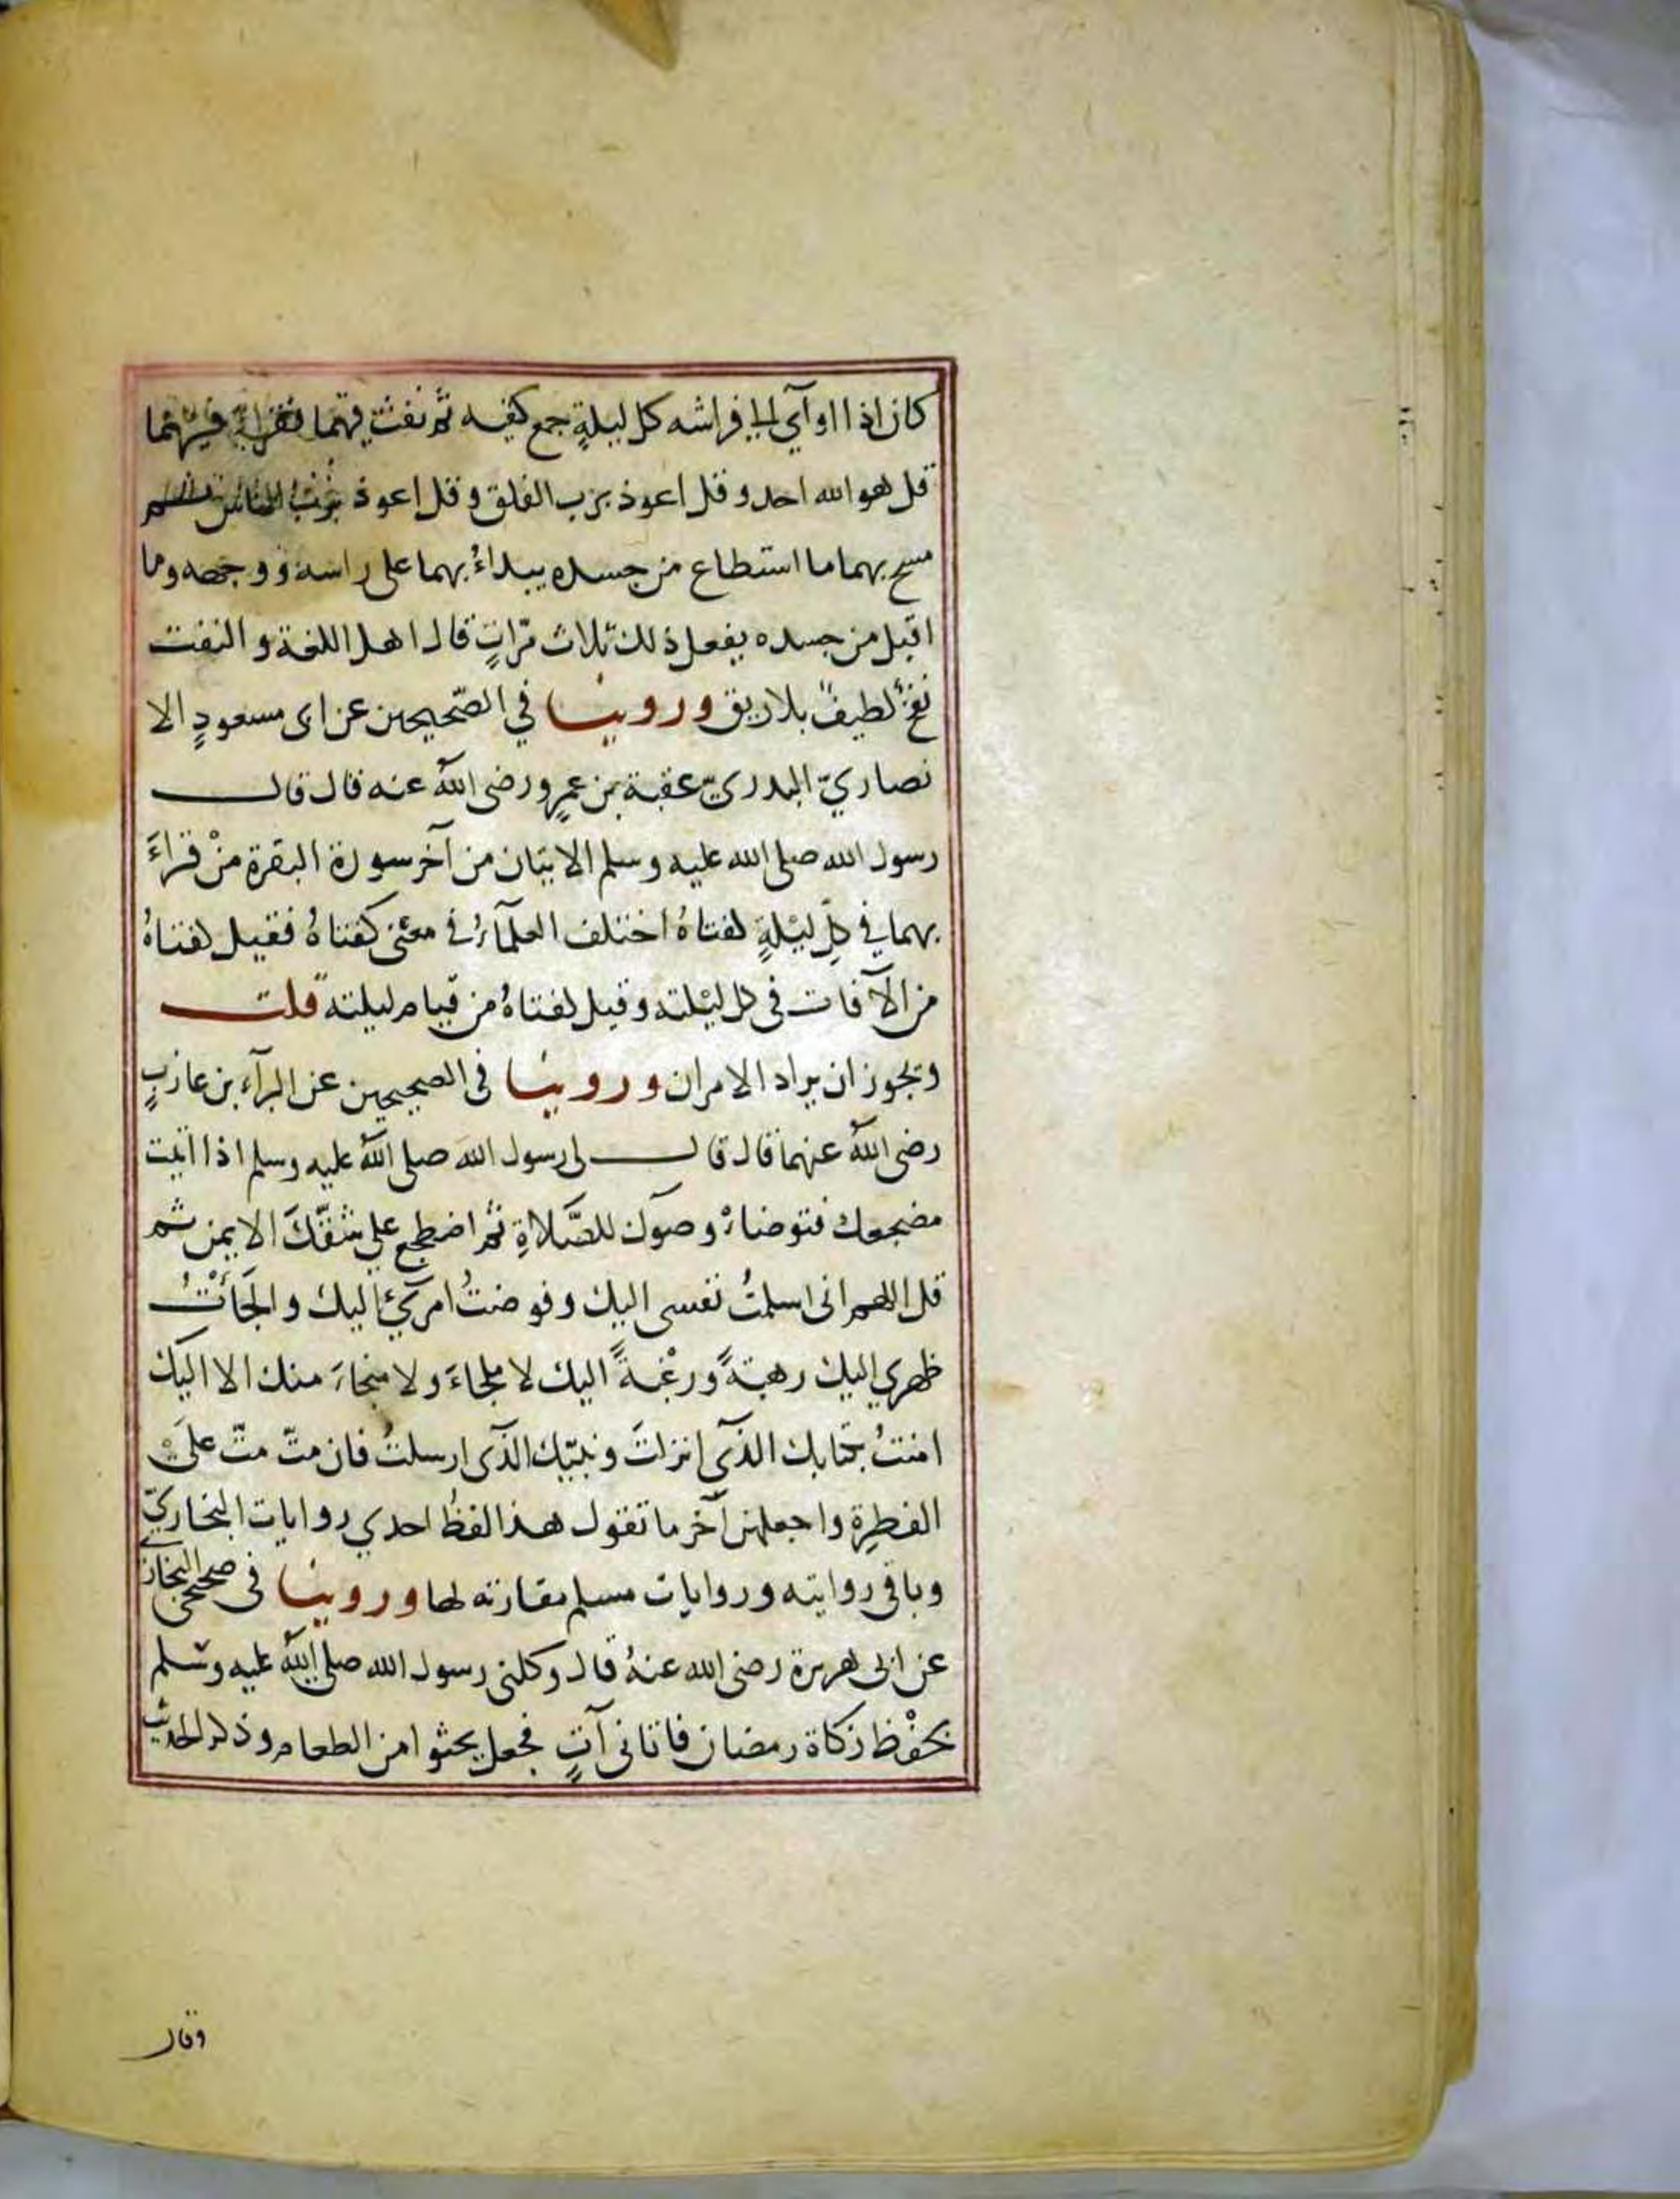 كان اذا اوآي الي فراشه كل ليلةٍ جمع كفيه ثم نفث فيهما فقراءَ فيهما
قل هو الله احد و قل اعوذ برب الفلق و قل اعوذ برب الناس ثم
مسح بهما ما استطاع من جسده يبداءُ بهما على راسه و وجهه وما
اقبل من جسده يفعل ذلك ثلاث مرّاتٍ قال اهل اللغة و النفث
نفخٌ لطيفٌ بلا ريق وروينا في الصّحيحين عن ابى مسعودٍ الا
نصاريّ البدريّ عقبة بن عمرٍو رضى اللّٰه عنه قال قال
رسول الله صلى الله عليه و سلم الايتان من آخر سورة البقرة منْ قراءَ
بهما في كلّ ليْلةٍ كفتاهُ اختلف العلمآءُ في معْنى كفتاهُ فقيل كفتاهُ
من الآفات فى كل ليْلته و قيل كفتاهُ من قيام ليلته قلت
ويجوز ان يراد الامران وروينا فى الصحيحين عن البرآء بن عازبٍ
رضى اللّٰه عنهما قال قال لى رسول اللّٰه صلى اللّٰه عليه وسلم اذا اتيت
مضجعك فتوضاءْ وضوءك للصّلاةِ ثم اضطجع علي شقّكَ الايمن ثم
قل اللهم انى اسلمتُ نفسى اليك و فوضتُ امرى اليك و الجَأْتُ
ظهري اليك رهبةً و رغْبةً اليك لا ملجاءَ و لا منجاءَ منك الا اليك
امنتُ بكتابك الذّى انزلتَ و نبيّك الذّى ارسلتَ فان متّ متّ علَى
الفطرةِ واجعلهن آخر ما تقول هذا لفظُ احدي روايات البخاريّ
وباقى رواياته و روايات مسلم مقاربه لها وروينا فى صحيح البخارى
عن ابى هريرة رضى الله عنهُ قال وكلنى رسول الله صلى اللّٰه عليه وسلم
بحفْظ زكاة رمضان فاتانى آتٍ فجعل يحثوا من الطعام و ذكر الحديث
وقال